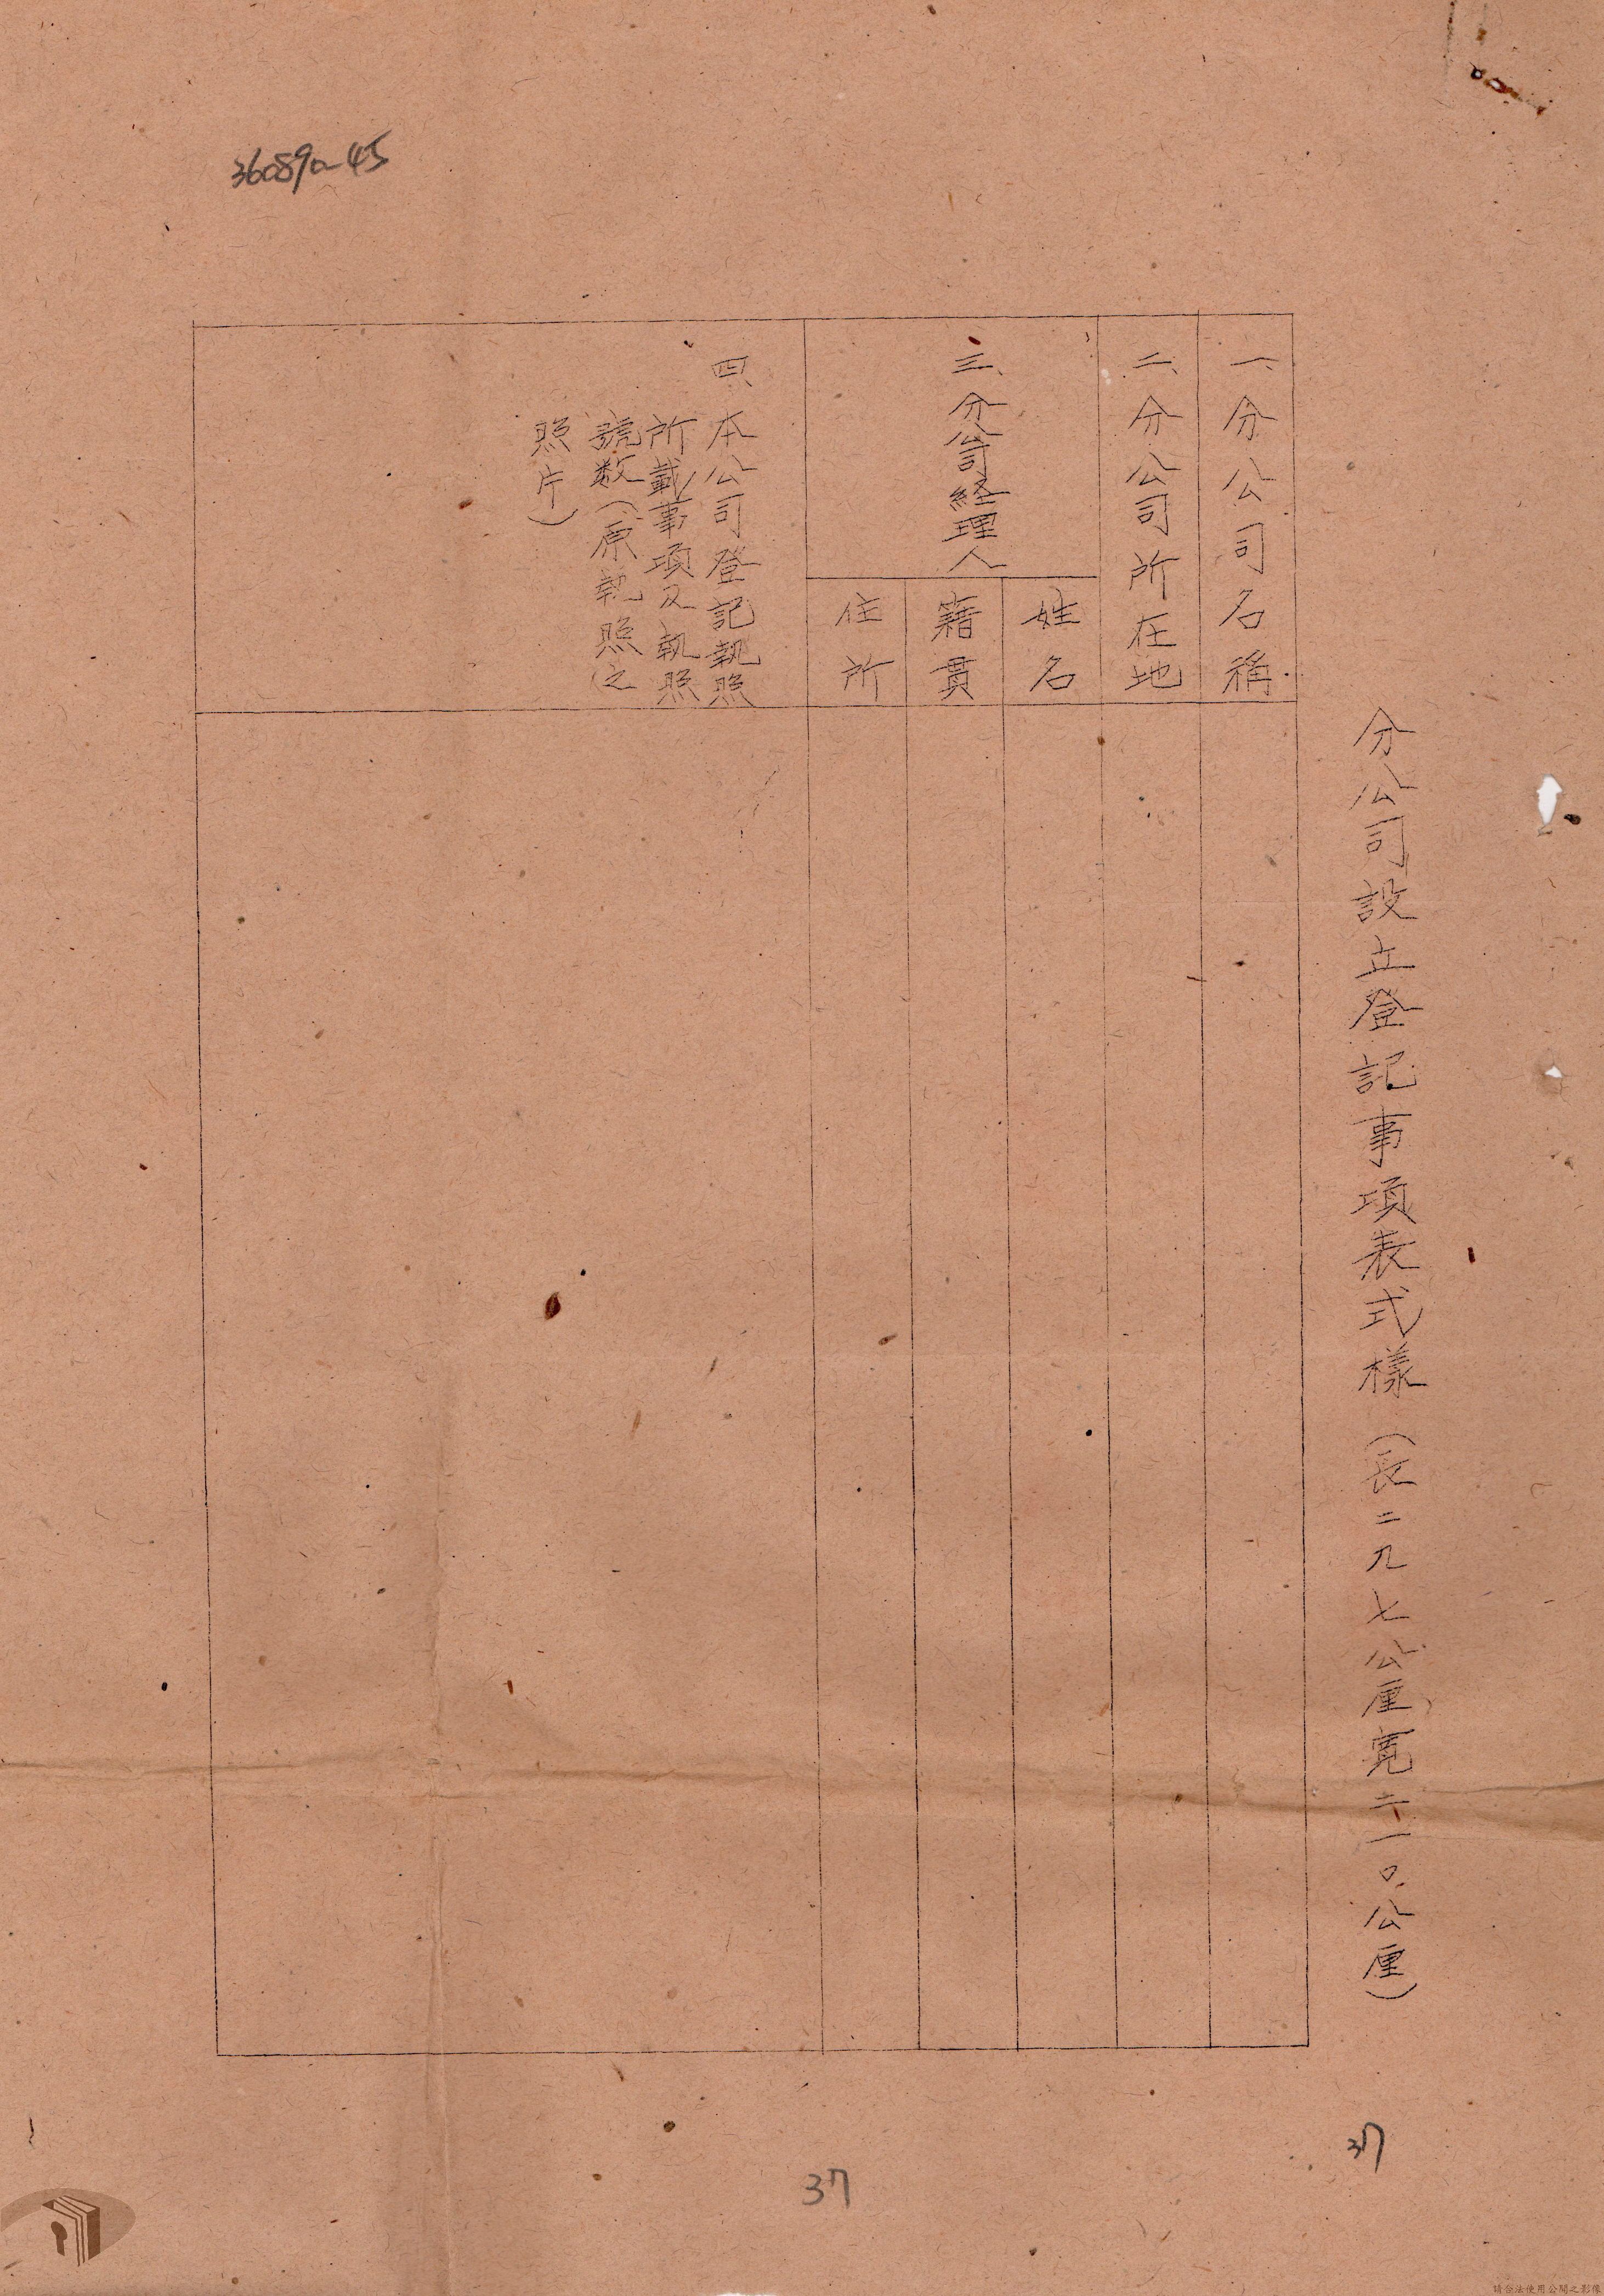 360890-45
分公司設立登記事項表式樣(長二九七公厘寬二一〇公厘)
一、分公司名稱
二、分公司所在地
三、分公司経理人
姓名
籍貫
住所
四、本公司登記執照
所載事項及執照
號数(原執照之
照片)
37
37
請合法使用公開之影像